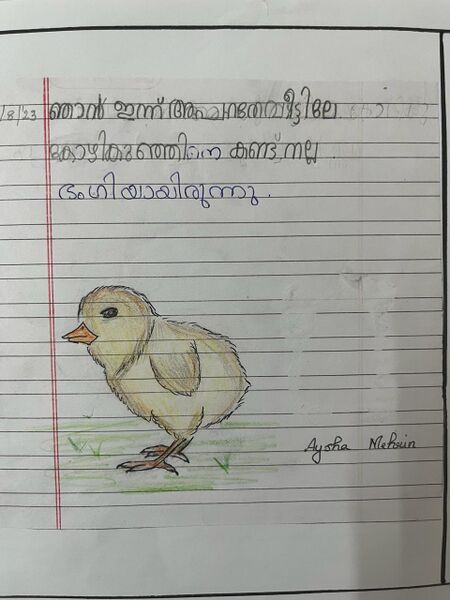 /8/23 ഞാൻ ഇന്ന് അപ്പറത്തേവീട്ടിലേ
കോഴികുഞ്ഞിനെ കണ്ട് നല്ല
ഭംഗിയായിരുന്നു.
Aysha Mehsin